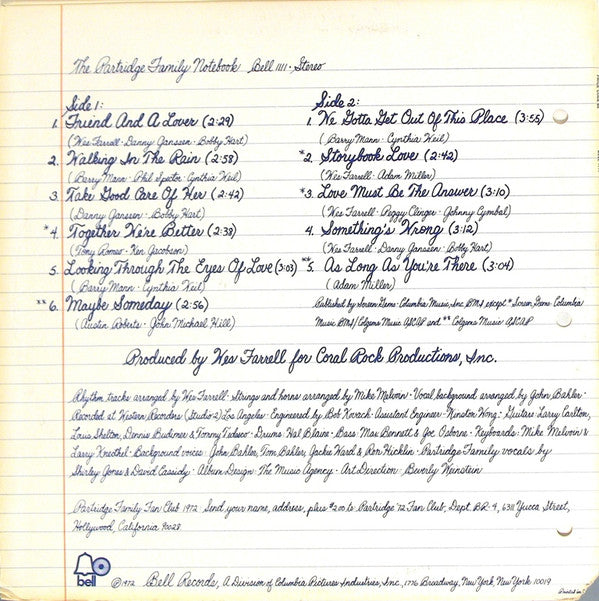 The Partridge Family Notebook Bell 1111 · Stereo
Side 1:
1. Friend And A Lover (2:29)
(Wes Farrell · Danny Janssen · Bobby Hart)
2. Walking In The Rain (2:58)
(Barry Mann · Phil Spector · Cynthia Weil)
3. Take Good Care Of Her (2:42)
(Danny Janssen · Bobby Hart)
*4. Together We're Better (2:38)
(Tony Romeo · Ken Jacobson)
5. Looking Through The Eyes Of Love (3:03)
(Barry Mann · Cynthia Weil)
**6. Maybe Someday (2:56)
(Austin Roberts · John Michael Hill)
Side 2:
1. We Gotta Get Out Of This Place (3:55)
(Barry Mann · Cynthia Weil)
*2. Storybook Love (2:42)
(Wes Farrell · Adam Miller)
*3. Love Must Be The Answer (3:10)
(Wes Farrell · Peggy Clinger · Johnny Cymbal)
4. Something's Wrong (3:12)
(Wes Farrell · Danny Janssen · Bobby Hart)
**5. As Long As You're There (3:04)
(Adam Miller)
Published by Screen Gems-Columbia Music, Inc. BMI except * Screen Gems-Columbia
Music BMI/Colgems Music ASCAP and ** Colgems Music ASCAP
Produced by Wes Farrell for Coral Rock Productions, Inc.
Rhythm tracks arranged by Wes Farrell · Strings and horns arranged by Mike Melvoin · Vocal background arranged by John Bahler ·
Recorded at Western Recorders (Studio 2) Los Angeles · Engineered by Bob Kovach · Assistant Engineer · Winston Wong · Guitars · Larry Carlton,
Louis Shelton, Dennis Budimer & Tommy Tedesco · Drums · Hal Blaine · Bass · Max Bennett & Joe Osborne · Keyboards · Mike Melvoin &
Larry Knechtel · Background voices · John Bahler, Tom Bahler, Jackie Ward & Ron Hicklin · Partridge Family vocals by
Shirley Jones & David Cassidy · Album Design · The Music Agency · Art Direction · Beverly Weinstein
Partridge Family Fan Club 1972 · Send your name, address, plus $2.00 to Partridge '72 Fan Club, Dept. BR-4, 6311 Yucca Street,
Hollywood, California 90028
bell
©1972 Bell Records, A Division of Columbia Pictures Industries, Inc., 1776 Broadway, New York, New York 10019
Printed in